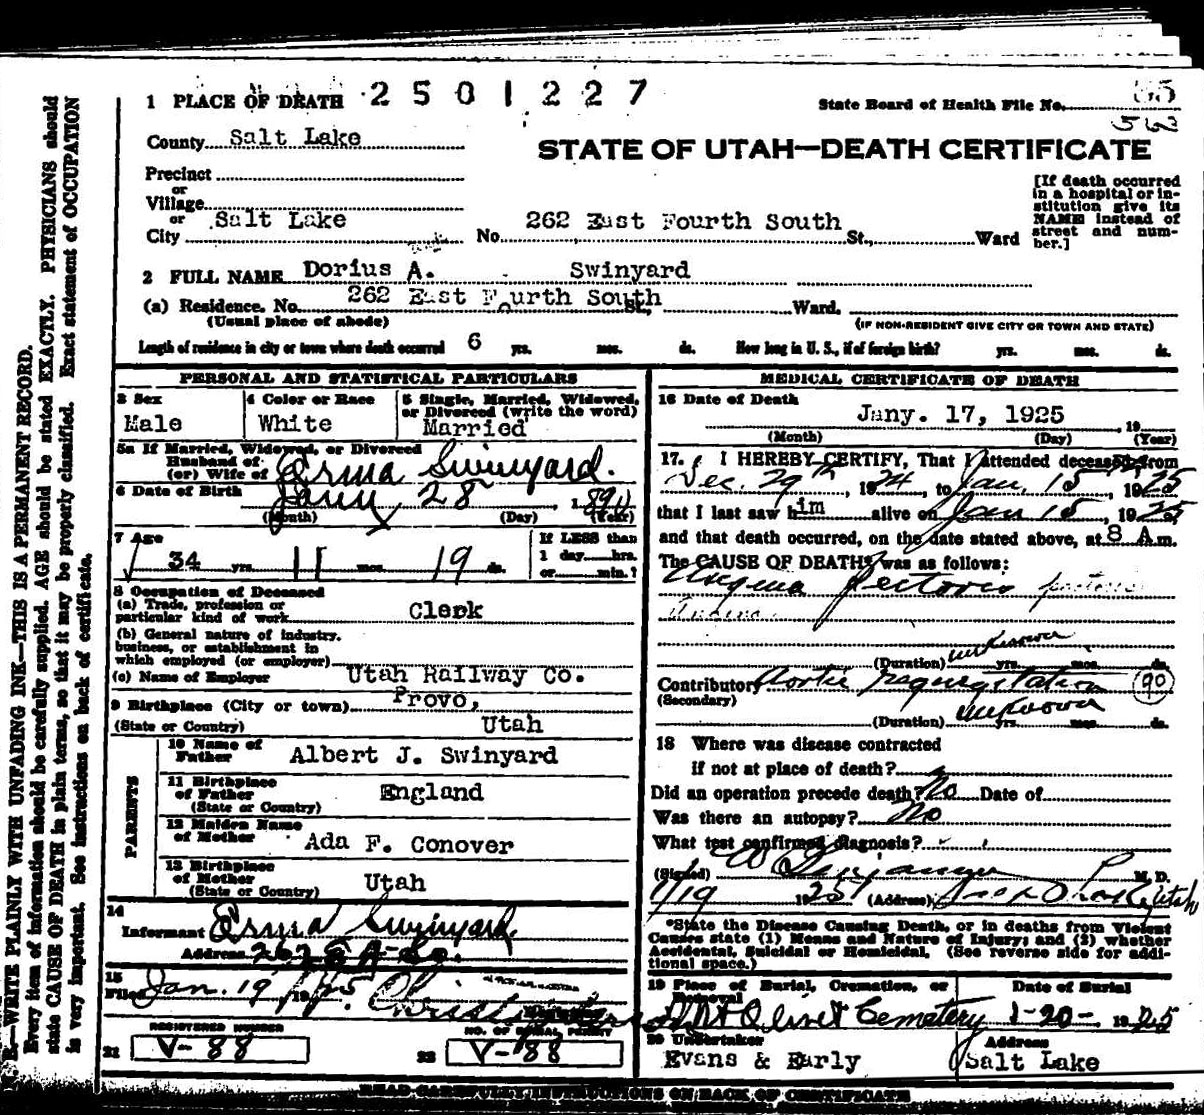 1 PLACE OF DEATH 2501227
State Board of Health File No.
County Salt Lake
STATE OF UTAH—DEATH CERTIFICATE
Precinct
or
Village
or
City Salt Lake No. 262 East Fourth South St., Ward
[If death occurred in a hospital or institution give its NAME instead of street and number.]
2 FULL NAME Dorius A. Swinyard
(a) Residence. No. 262 East Fourth South St., Ward.
(Usual place of abode) (IF NON-RESIDENT GIVE CITY OR TOWN AND STATE)
Length of residence in city or town where death occurred 6 yrs. mos. ds. How long in U. S., if of foreign birth? yrs. mos. ds.
PERSONAL AND STATISTICAL PARTICULARS
3 Sex
Male
4 Color or Race
White
5 Single, Married, Widowed, or Divorced (write the word)
Married
5a If Married, Widowed, or Divorced
Husband of
(or) Wife of Erma Swinyard.
6 Date of Birth Jany 28 1890
(Month) (Day) (Year)
7 Age
34 yrs. 11 mos. 19 ds.
If LESS than
1 day hrs.
or min.?
8 Occupation of Deceased
(a) Trade, profession or
particular kind of work Clerk
(b) General nature of industry,
business, or establishment in
which employed (or employer)
(c) Name of Employer Utah Railway Co.
9 Birthplace (City or town) Provo,
(State or Country) Utah
PARENTS
10 Name of
Father Albert J. Swinyard
11 Birthplace
of Father England
(State or Country)
12 Maiden Name
of Mother Ada F. Conover
13 Birthplace
of Mother
(State or Country) Utah
14
Informant Erma Swinyard.
Address 262 E 4 So.
15
Filed Jan. 19 1925
REGISTERED NUMBER
21 V-88
NO. OF BURIAL PERMIT
22 V-88
MEDICAL CERTIFICATE OF DEATH
16 Date of Death
Jany. 17, 1925, 19
(Month) (Day) (Year)
17. I HEREBY CERTIFY, That I attended deceased from
Dec. 29th, 1924, to Jan. 15, 1925
that I last saw him alive on Jan 15, 1925
and that death occurred, on the date stated above, at 8 A.m.
The CAUSE OF DEATH* was as follows:
Angina Pectoris
(Duration) unknown yrs. mos. ds.
Contributory Aortic regurgitation 90
(Secondary)
(Duration) unknown yrs. mos. ds.
18 Where was disease contracted
if not at place of death?
Did an operation precede death? No Date of
Was there an autopsy? No
What test confirmed diagnosis?
(Signed) M. D.
1/19 1925 (Address) Utah
*State the Disease Causing Death, or in deaths from Violent
Causes state (1) Means and Nature of Injury; and (2) whether
Accidental, Suicidal or Homicidal. (See reverse side for addi-
tional space.)
19 Place of Burial, Cremation, or
Removal
Mt Olivet Cemetery
Date of Burial
1-20-, 1925
20 Undertaker
Evans & Early
Address
Salt Lake
READ CAREFULLY INSTRUCTIONS ON BACK OF CERTIFICATE
N. B.—WRITE PLAINLY WITH UNFADING INK—THIS IS A PERMANENT RECORD.
Every item of information should be carefully supplied. AGE should be stated EXACTLY. PHYSICIANS should
state CAUSE OF DEATH in plain terms, so that it may be properly classified. Exact statement of OCCUPATION
is very important. See instructions on back of certificate.